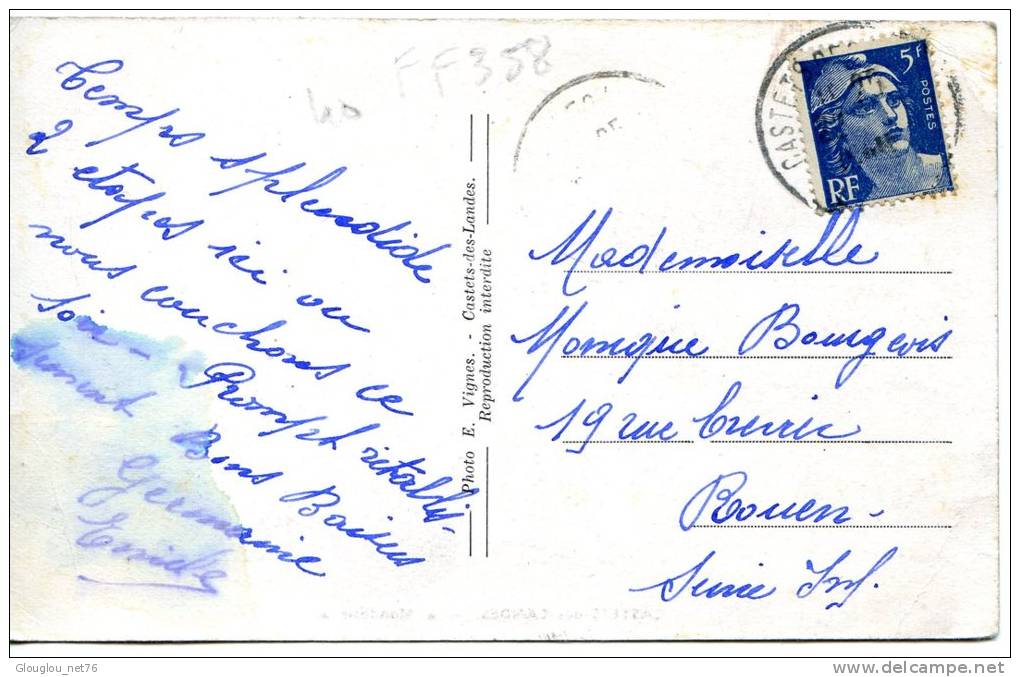 FF358
40
Temps splendide
2 etapes ici ou
nous couchons ce
soir - Prompt rétablis-
sement Bons Baisers
Germaine
Photo E. Vignes. - Castets-des-Landes.
Reproduction interdite
CASTETS
5F
POSTES
RF
Mademoiselle
Monique Bourgeois
19 rue
Rouen -
Seine Inf.
Glouglou_net76